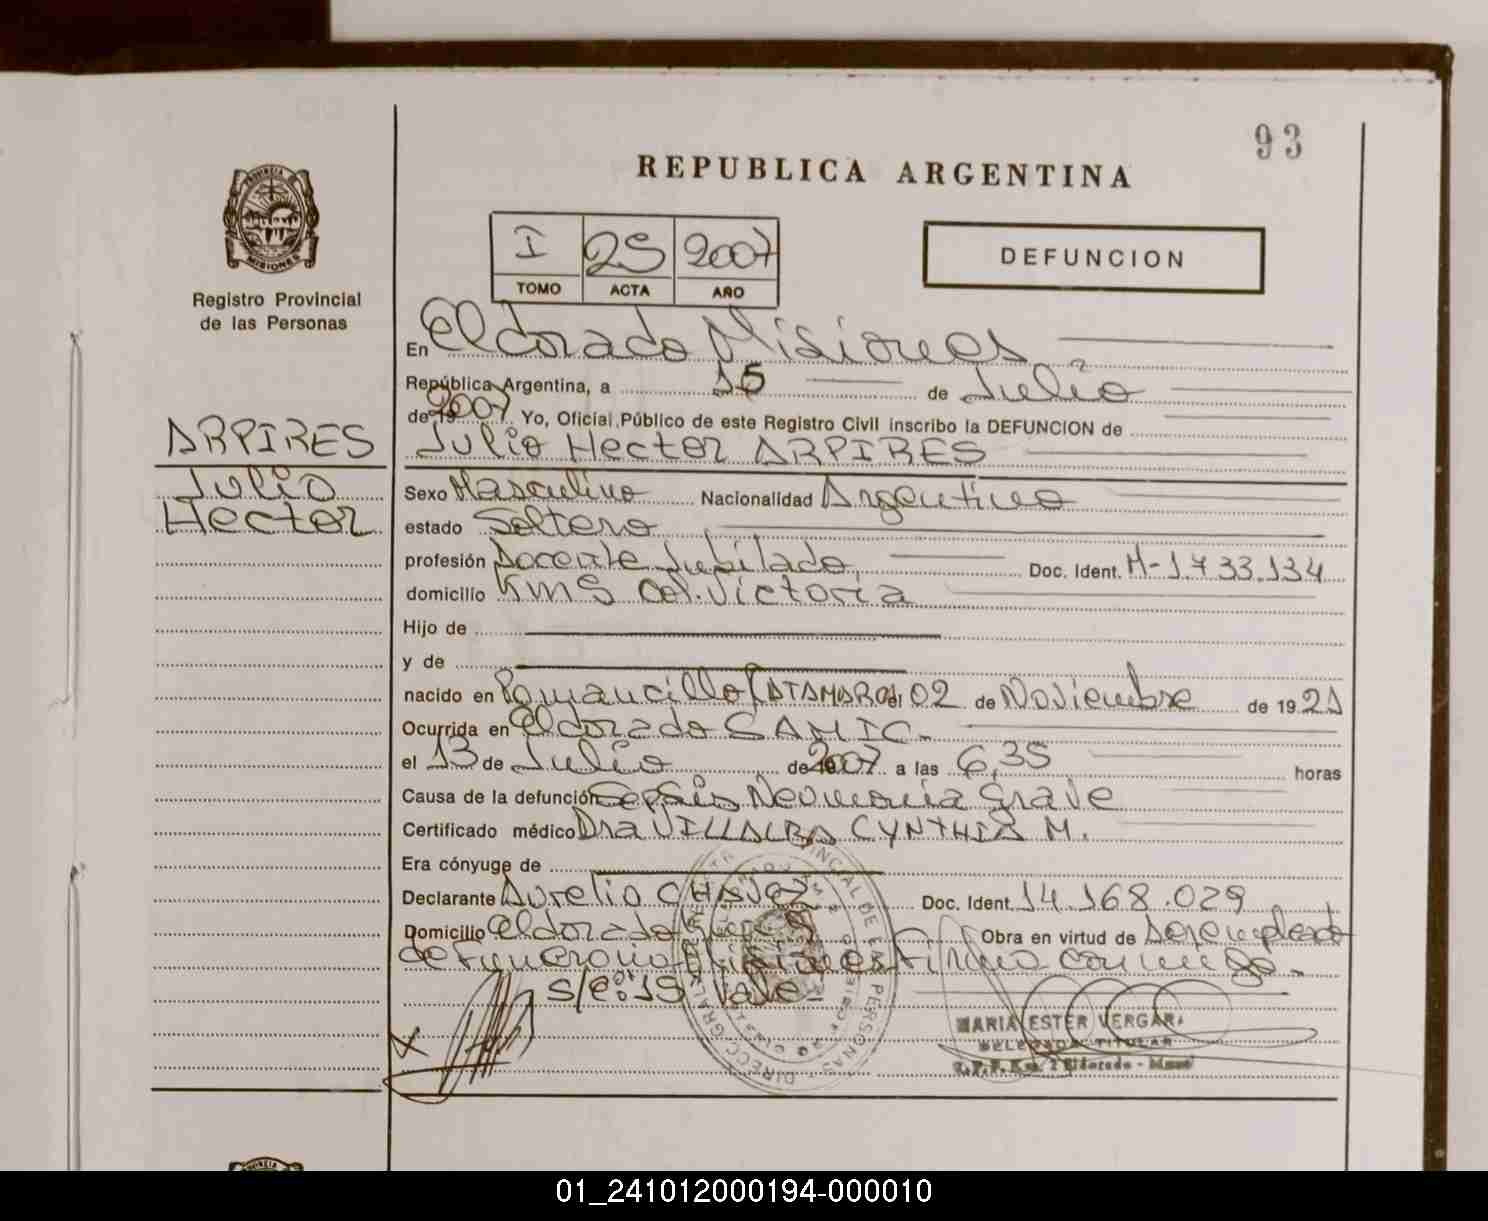 93
REPUBLICA ARGENTINA
PROVINCIA DE
MISIONES
Registro Provincial
de las Personas
I 25 2007
TOMO ACTA AÑO
DEFUNCION
En Eldorado Misiones
República Argentina, a 15 de Julio
de 2007 Yo, Oficial Público de este Registro Civil inscribo la DEFUNCION de
Julio Hector ARPIRES
ARPIRES
Julio
Hector
Sexo Masculino Nacionalidad Argentino
estado Soltero
profesión Docente Jubilado Doc. Ident. M-1.733.134
domicilio Km5 Col. Victoria
Hijo de
y de
nacido en Pomancillo CATAMARCA el 02 de Noviembre de 1921
Ocurrida en Eldorado SAMIC.
el 13 de Julio de 2007 a las 6,35 horas
Causa de la defunción Sepsis Neumonia Grave
Certificado médico Dra VILLALBA CYNTHIA M.
Era cónyuge de
Declarante Aurelio CHAVEZ Doc. Ident. 14.168.029
Domicilio Eldorado Km 9 Obra en virtud de
de Misiones Firma conmigo.
S/e: 15 Vale-
MARIA ESTER VERGARA
DELEGADA TITULAR
R.P.P. Km. 2 Eldorado - Mnes
01_241012000194-000010